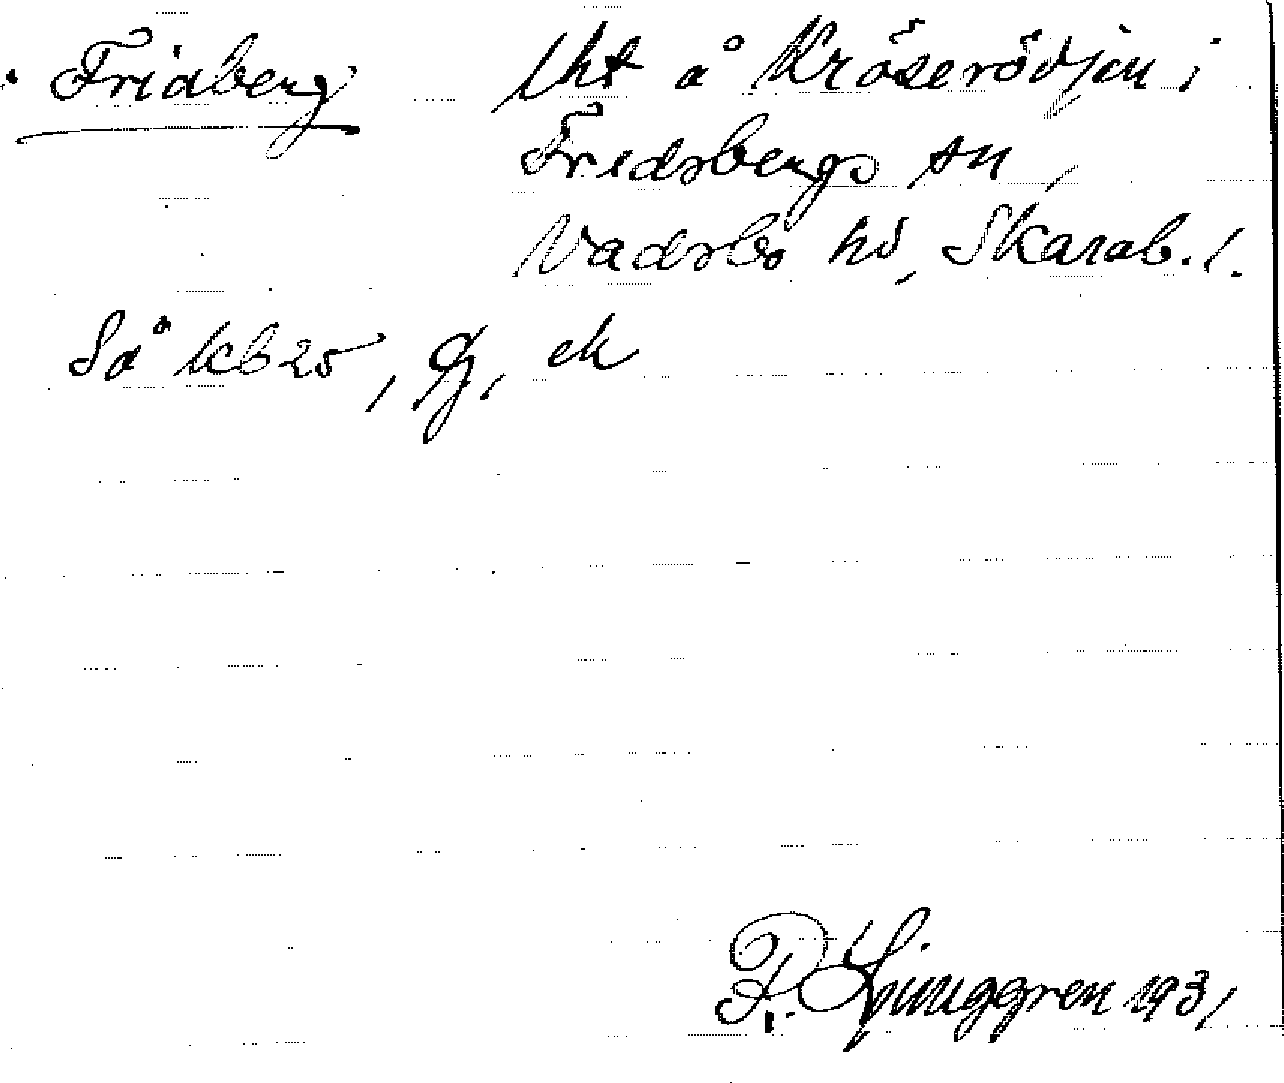 Fridberg lht å Kröseródjan i
Fredsbergs sn,
Vadsbo hd, Skarab. l.
Så kb 25, Gj, ek
R. Ljunggren 1931